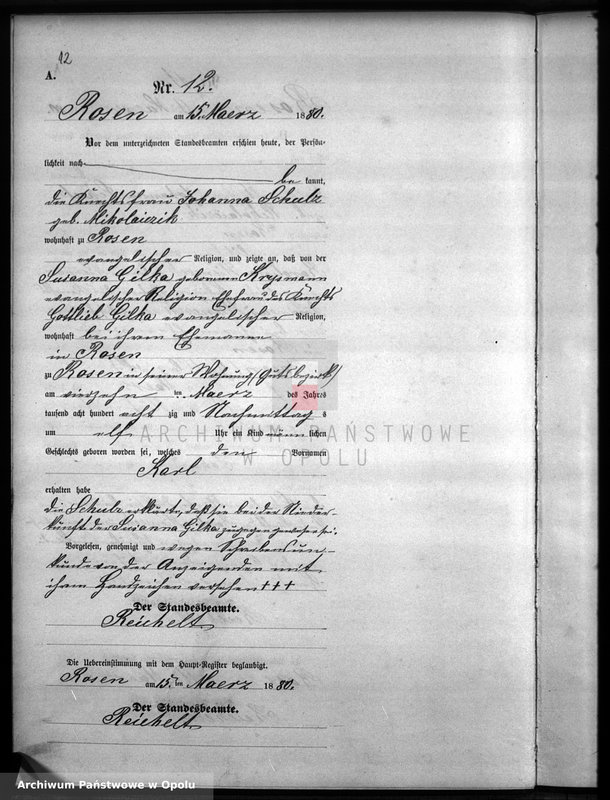 12
A.
Nr. 12.
Rosen am 15. Maerz 1880.
Vor dem unterzeichneten Standesbeamten erschien heute, der Persön-
lichkeit nach
be kannt,
die Knechtsfrau Johanna Schulz
geb. Mikolaiczik
wohnhaft zu Rosen
evangelischer Religion, und zeigte an, daß von der
Susanna Gilka geborenen Krysmann
evangelischer Religion Ehefrau des Knechts
Gottlieb Gilka evangelischer Religion,
wohnhaft bei ihrem Ehemanne
in Rosen
zu Rosen in seiner Wohnung (Gutsbezirk)
am vierzehn ten Maerz des Jahres
tausend acht hundert acht zig und Nachmittag s
um elf Uhr ein Kind männ lichen
Geschlechts geboren worden sei, welches den Vornamen
Karl
erhalten habe
die Schulz erklärte, daß sie bei der Nieder-
kunft der Susanna Gilka zugegen gewesen sei.
Vorgelesen, genehmigt und wegen Schreibensun-
kunde von der Anzeigenden mit
ihrem Handzeichen versehen +++
Der Standesbeamte.
Reichelt
Die Uebereinstimmung mit dem Haupt-Register beglaubigt.
Rosen am 15 ten Maerz 1880.
Der Standesbeamte.
Reichelt
ARCHIWUM PAŃSTWOWE
W OPOLU
Archiwum Państwowe w Opolu